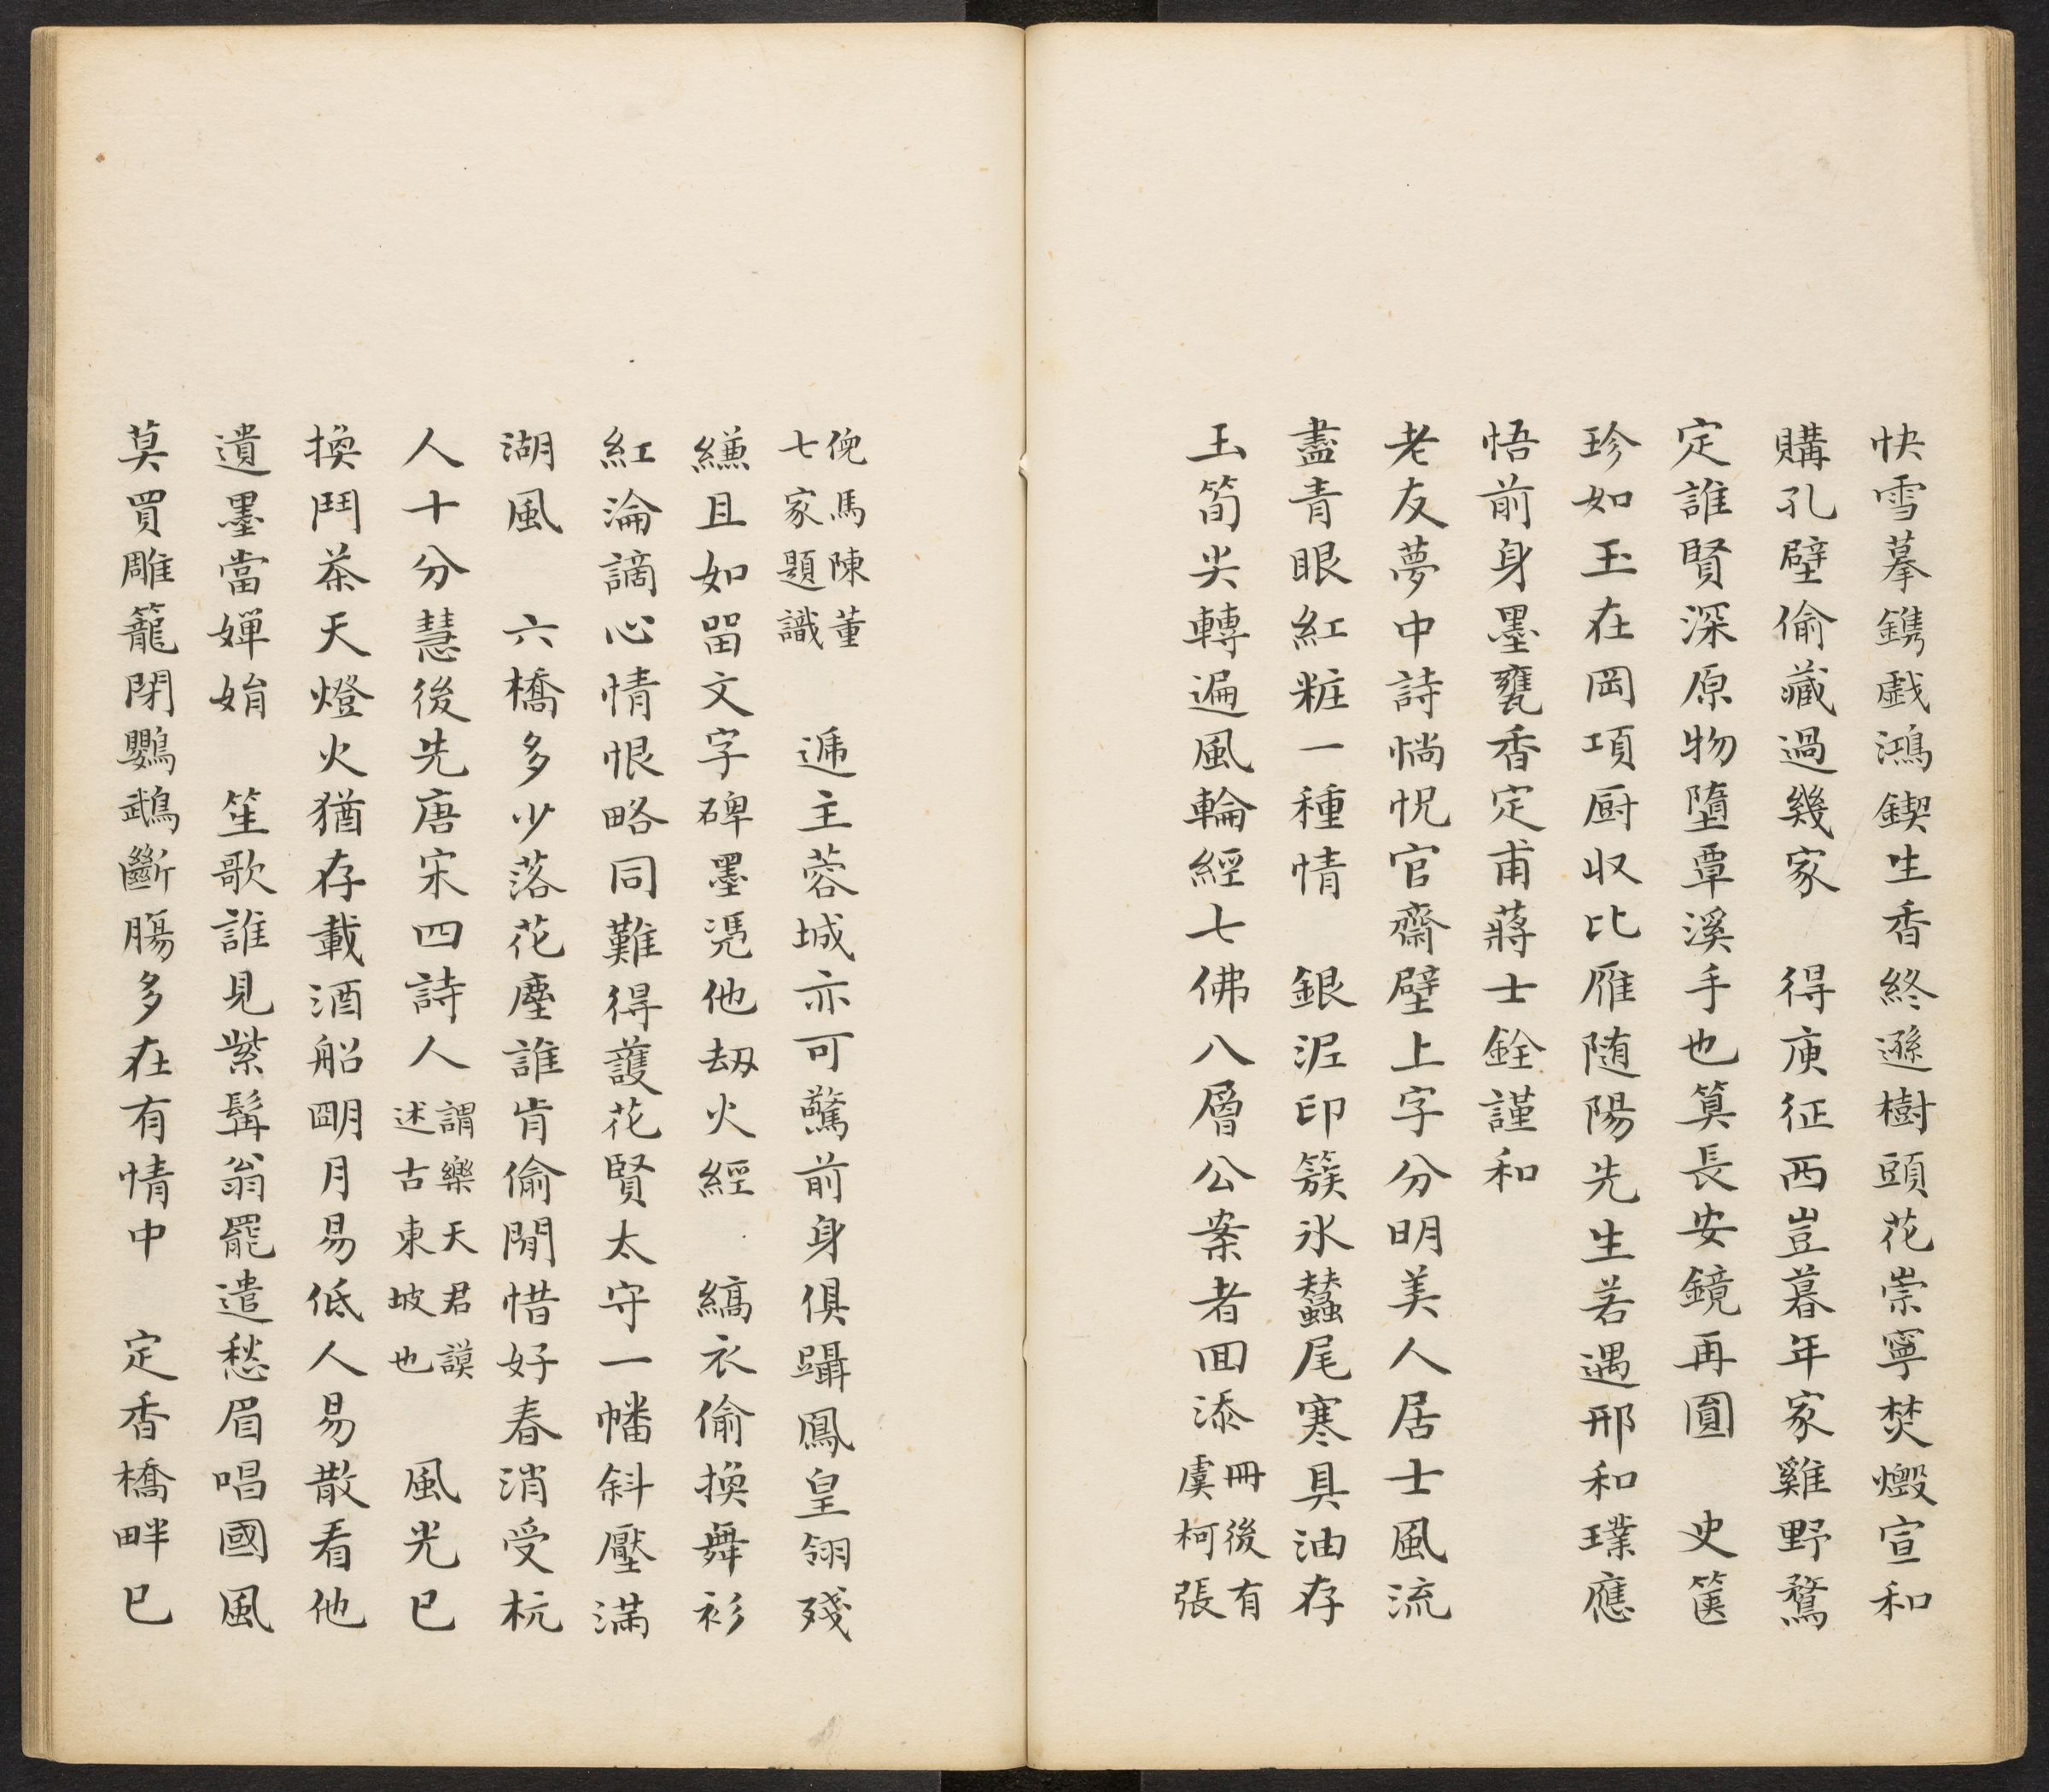 快雪摹鐫戲鴻鍥生香終遜樹頭花崇寧焚燬宣和
購孔壁偷藏過幾家　得庾征西豈暮年家雞野鶩
定誰賢深原物墮覃溪手也算長安鏡再圓　史篋
珍如玉在岡項廚收比雁随陽先生若遇邢和璞應
悟前身墨甕香定甫蔣士銓謹和
老友夢中詩惝怳官齋壁上字分明美人居士風流
盡青眼紅粧一種情　銀泥印簇氷蠶尾寒具油存
玉筍尖轉遍風輪經七佛八層公案者囬添冊後有虞柯張
倪馬陳董七家題識　遞主蓉城亦可驚前身俱躡鳳皇翎殘
縑且如畱文字碑墨凴他刼火經　縞衣偷換舞衫
紅淪謫心情恨略同難得護花賢太守一幡斜壓滿
湖風　六橋多少落花塵誰肯偷閒惜好春消受杭
人十分慧後先唐宋四詩人謂樂天君謨述古東坡也　風光已
換鬥茶天燈火猶存載酒船朙月易低人易散看他
遺墨當嬋娟　笙歌誰見紫髯翁罷遣愁眉唱國風
莫買雕籠閉鸚鵡斷腸多在有情中　定香橋畔已